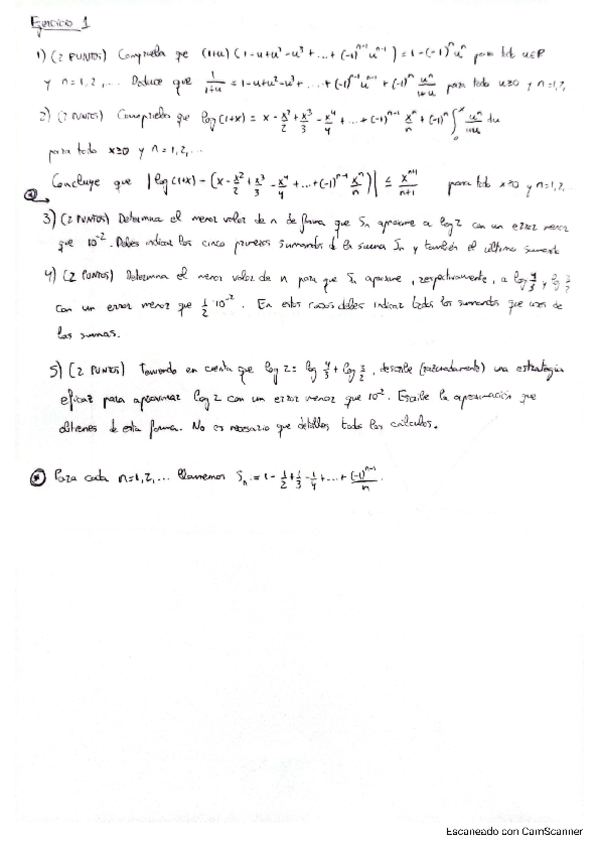 Ejercicio 1
1) (2 PUNTOS) Comprueba que (1+u)(1-u+u²-u³+...+(-1)ⁿ⁻¹uⁿ⁻¹) = 1-(-1)ⁿuⁿ para todo u∈R
y n=1,2,... Deduce que 1/(1+u) = 1-u+u²-u³+...+(-1)ⁿ⁻¹uⁿ⁻¹+(-1)ⁿ uⁿ/(1+u) para todo u≥0 y n=1,2,
2) (2 PUNTOS) Comprueba que log(1+x) = x - x²/2 + x³/3 - x⁴/4 + ... + (-1)ⁿ⁻¹ xⁿ/n + (-1)ⁿ ∫₀ˣ uⁿ/(1+u) du
para todo x≥0 y n=1,2,...
Concluye que |log(1+x) - (x - x²/2 + x³/3 - x⁴/4 + ... + (-1)ⁿ⁻¹ xⁿ/n)| ≤ xⁿ⁺¹/(n+1) para todo x≥0 y n=1,2,...
3) (2 PUNTOS) Determina el menor valor de n de forma que Sn aproxime a log 2 con un error menor
que 10⁻². Debes indicar los cinco primeros sumandos de la suma Sn y también el último sumando
4) (2 PUNTOS) Determina el menor valor de n para que Sn aproxime, respectivamente, a log 4/3 y log 3/2
con un error menor que 1/2·10⁻². En estos casos debes indicar todos los sumandos que uses de
las sumas.
5) (2 PUNTOS) Teniendo en cuenta que log 2 = log 4/3 + log 3/2, describe (razonadamente) una estrategia
eficaz para aproximar log 2 con un error menor que 10⁻². Escribe la aproximación que
obtienes de esta forma. No es necesario que detalles todos los cálculos.
* Para cada n=1,2,... llamemos Sn := 1 - 1/2 + 1/3 - 1/4 + ... + (-1)ⁿ⁻¹/n.
Escaneado con CamScanner